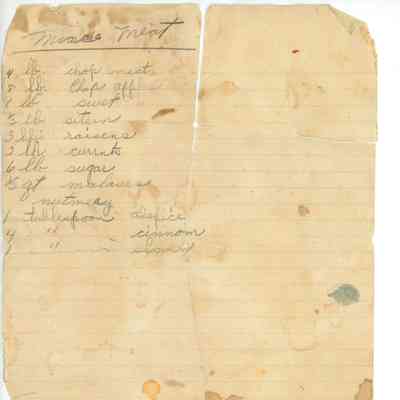 Mince Meat
4 lb chop meat
8 lb Chop appl
lb suet
5 lb sitern
3 lb raisens
2 lb currnts
6 lb sugar
qt malasses
nutmeg
1 tablespoon alspice
4 " cinnom
1 "